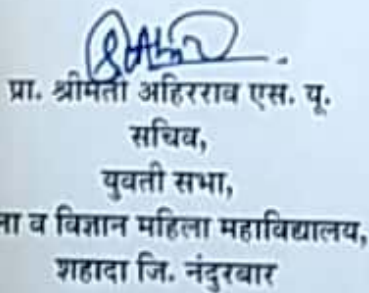 प्रा. श्रीमती अहिरराव एस. पू.
सचिव,
युवती सभा,
व विज्ञान महिला महाविद्यालय,
शहादा जि. नंदुरबार